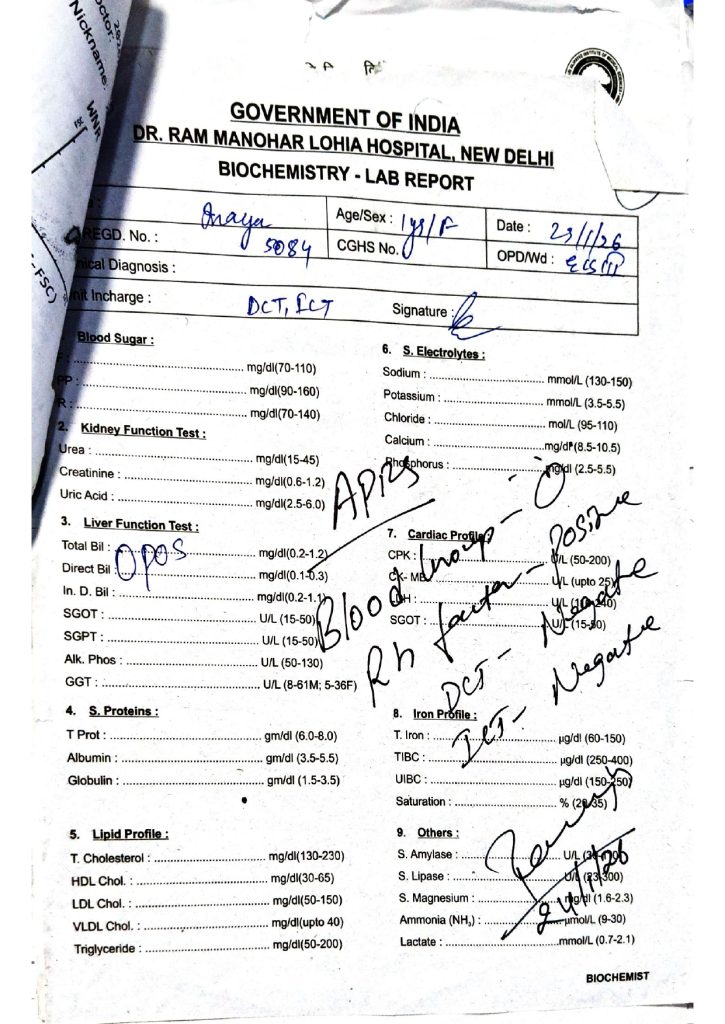 octor:
Nickname:
WNR
FSC)
GOVERNMENT OF INDIA
DR. RAM MANOHAR LOHIA HOSPITAL, NEW DELHI
BIOCHEMISTRY - LAB REPORT
: Inaya Age/Sex : 1yr/F Date : 23/1/26
REGD. No. : 5084 CGHS No. OPD/Wd :
ical Diagnosis :
nit Incharge : DCT, ICT Signature :
Blood Sugar :
F : mg/dl(70-110)
PP : mg/dl(90-160)
R : mg/dl(70-140)
2. Kidney Function Test :
Urea : mg/dl(15-45)
Creatinine : mg/dl(0.6-1.2)
Uric Acid : mg/dl(2.5-6.0)
3. Liver Function Test :
Total Bil : mg/dl(0.2-1.2)
O POS
Direct Bil mg/dl(0.1-0.3)
In. D. Bil : mg/dl(0.2-1.1)
SGOT : U/L (15-50)
SGPT : U/L (15-50)
Alk. Phos : U/L (50-130)
GGT : U/L (8-61M; 5-36F)
4. S. Proteins :
T Prot : gm/dl (6.0-8.0)
Albumin : gm/dl (3.5-5.5)
Globulin : gm/dl (1.5-3.5)
5. Lipid Profile :
T. Cholesterol : mg/dl(130-230)
HDL Chol. : mg/dl(30-65)
LDL Chol. : mg/dl(50-150)
VLDL Chol. : mg/dl(upto 40)
Triglyceride : mg/dl(50-200)
6. S. Electrolytes :
Sodium : mmol/L (130-150)
Potassium : mmol/L (3.5-5.5)
Chloride : mol/L (95-110)
Calcium : mg/dl (8.5-10.5)
Phosphorus : mg/dl (2.5-5.5)
Blood Group - O
Rh factor - Positive
DCT - Negative
ICT - Negative
7. Cardiac Profile :
CPK : U/L (50-200)
CK- MB U/L (upto 25)
LDH : U/L
SGOT : U/L (15-50)
8. Iron Profile :
T. Iron : µg/dl (60-150)
TIBC : µg/dl (250-400)
UIBC : µg/dl (150-250)
Saturation : % (20-35)
9. Others :
S. Amylase : U/L
S. Lipase : U/L (23-300)
S. Magnesium : mg/dl (1.6-2.3)
Ammonia (NH₃) : µmol/L (9-30)
Lactate : mmol/L (0.7-2.1)
24/1/26
BIOCHEMIST